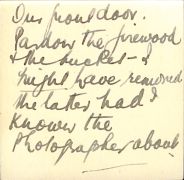 Our front door.
Pardon the firewood
& the bucket - I
might have removed
the latter had I
known the
Photographer about